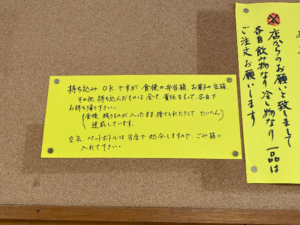 持ち込みOKですが 食後の弁当箱、お菓子の空箱
その他 持ち込んだものは全て 責任をもって、各自で
お持ち帰り下さい。
(食後、残りものが入ったまま捨てられたりして たいへん
迷惑しています。
空缶、ペットボトルは当店で処分しますので、ごみ箱に
入れて下さい。
店からのお願いと致しまして
各自飲み物なり冷し物なり一品は
ご注文お願いします